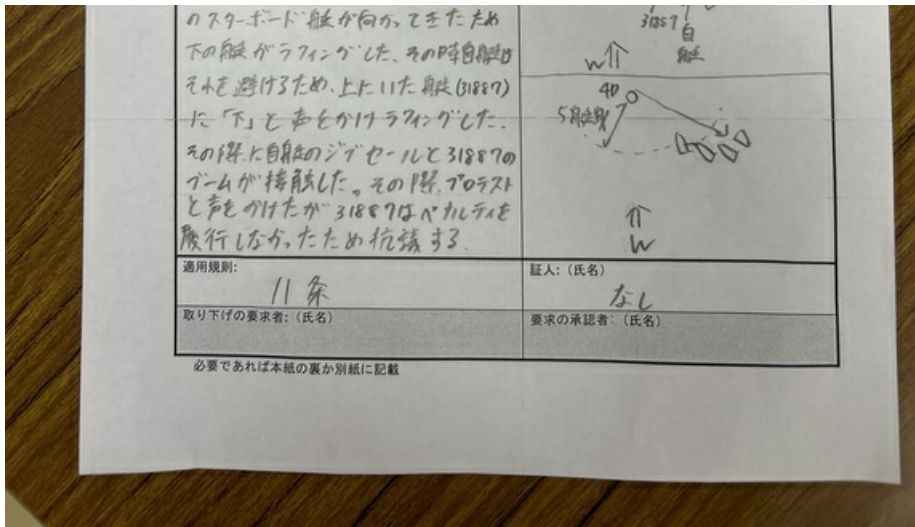 のスターボード艇が向かってきたため
下の艇がラフィングした、その時自艇は
それを避けるため、上にいた艇(31887)
に「下」と声をかけラフィングした、
その際に自艇のジブセールと31887の
ブームが接触した。その際、プロテスト
と声をかけたが31887はペナルティを
履行しなかったため抗議する
31887
自艇
W
4D
5艇身
W
適用規則:
11条
証人:(氏名)
なし
取り下げの要求者:(氏名)
要求の承認者:(氏名)
必要であれば本紙の裏か別紙に記載